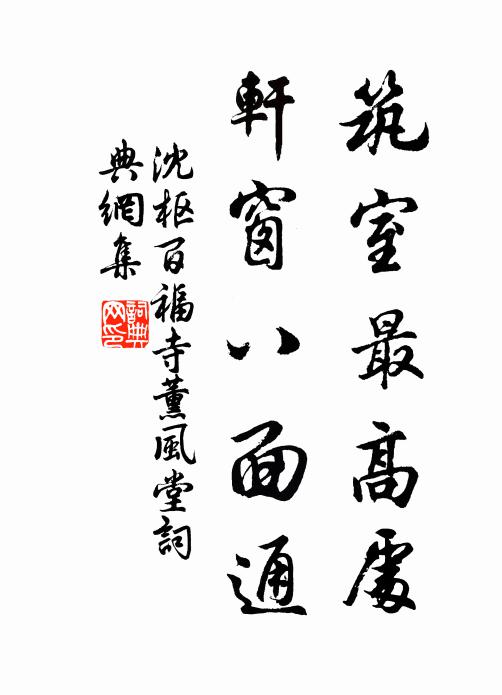 筑室最高處
軒窗八面通
沈枢百福寺薰風堂詞
典網集
詞典
网印